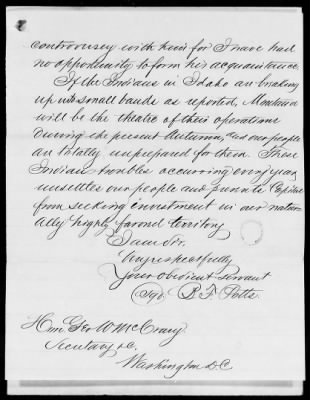 controversey with him for I have had
no opportunity to form his acquaintance.
If the Indians in Idaho are breaking
up into small bands as reported, Montana
will be the theatre of their operations
during the present Autumn, and our people
are totally unprepared for them. These
Indian troubles occurring every year
unsettles our people and prevents Capital
from seeking investment in our natur-
ally highly favored territory
I am Sir.
Very respectfully
Your obedient servant
(Sgd) B. F. Potts.
Hon Geo W McCrary
Secretary &c.
Washington D.C.